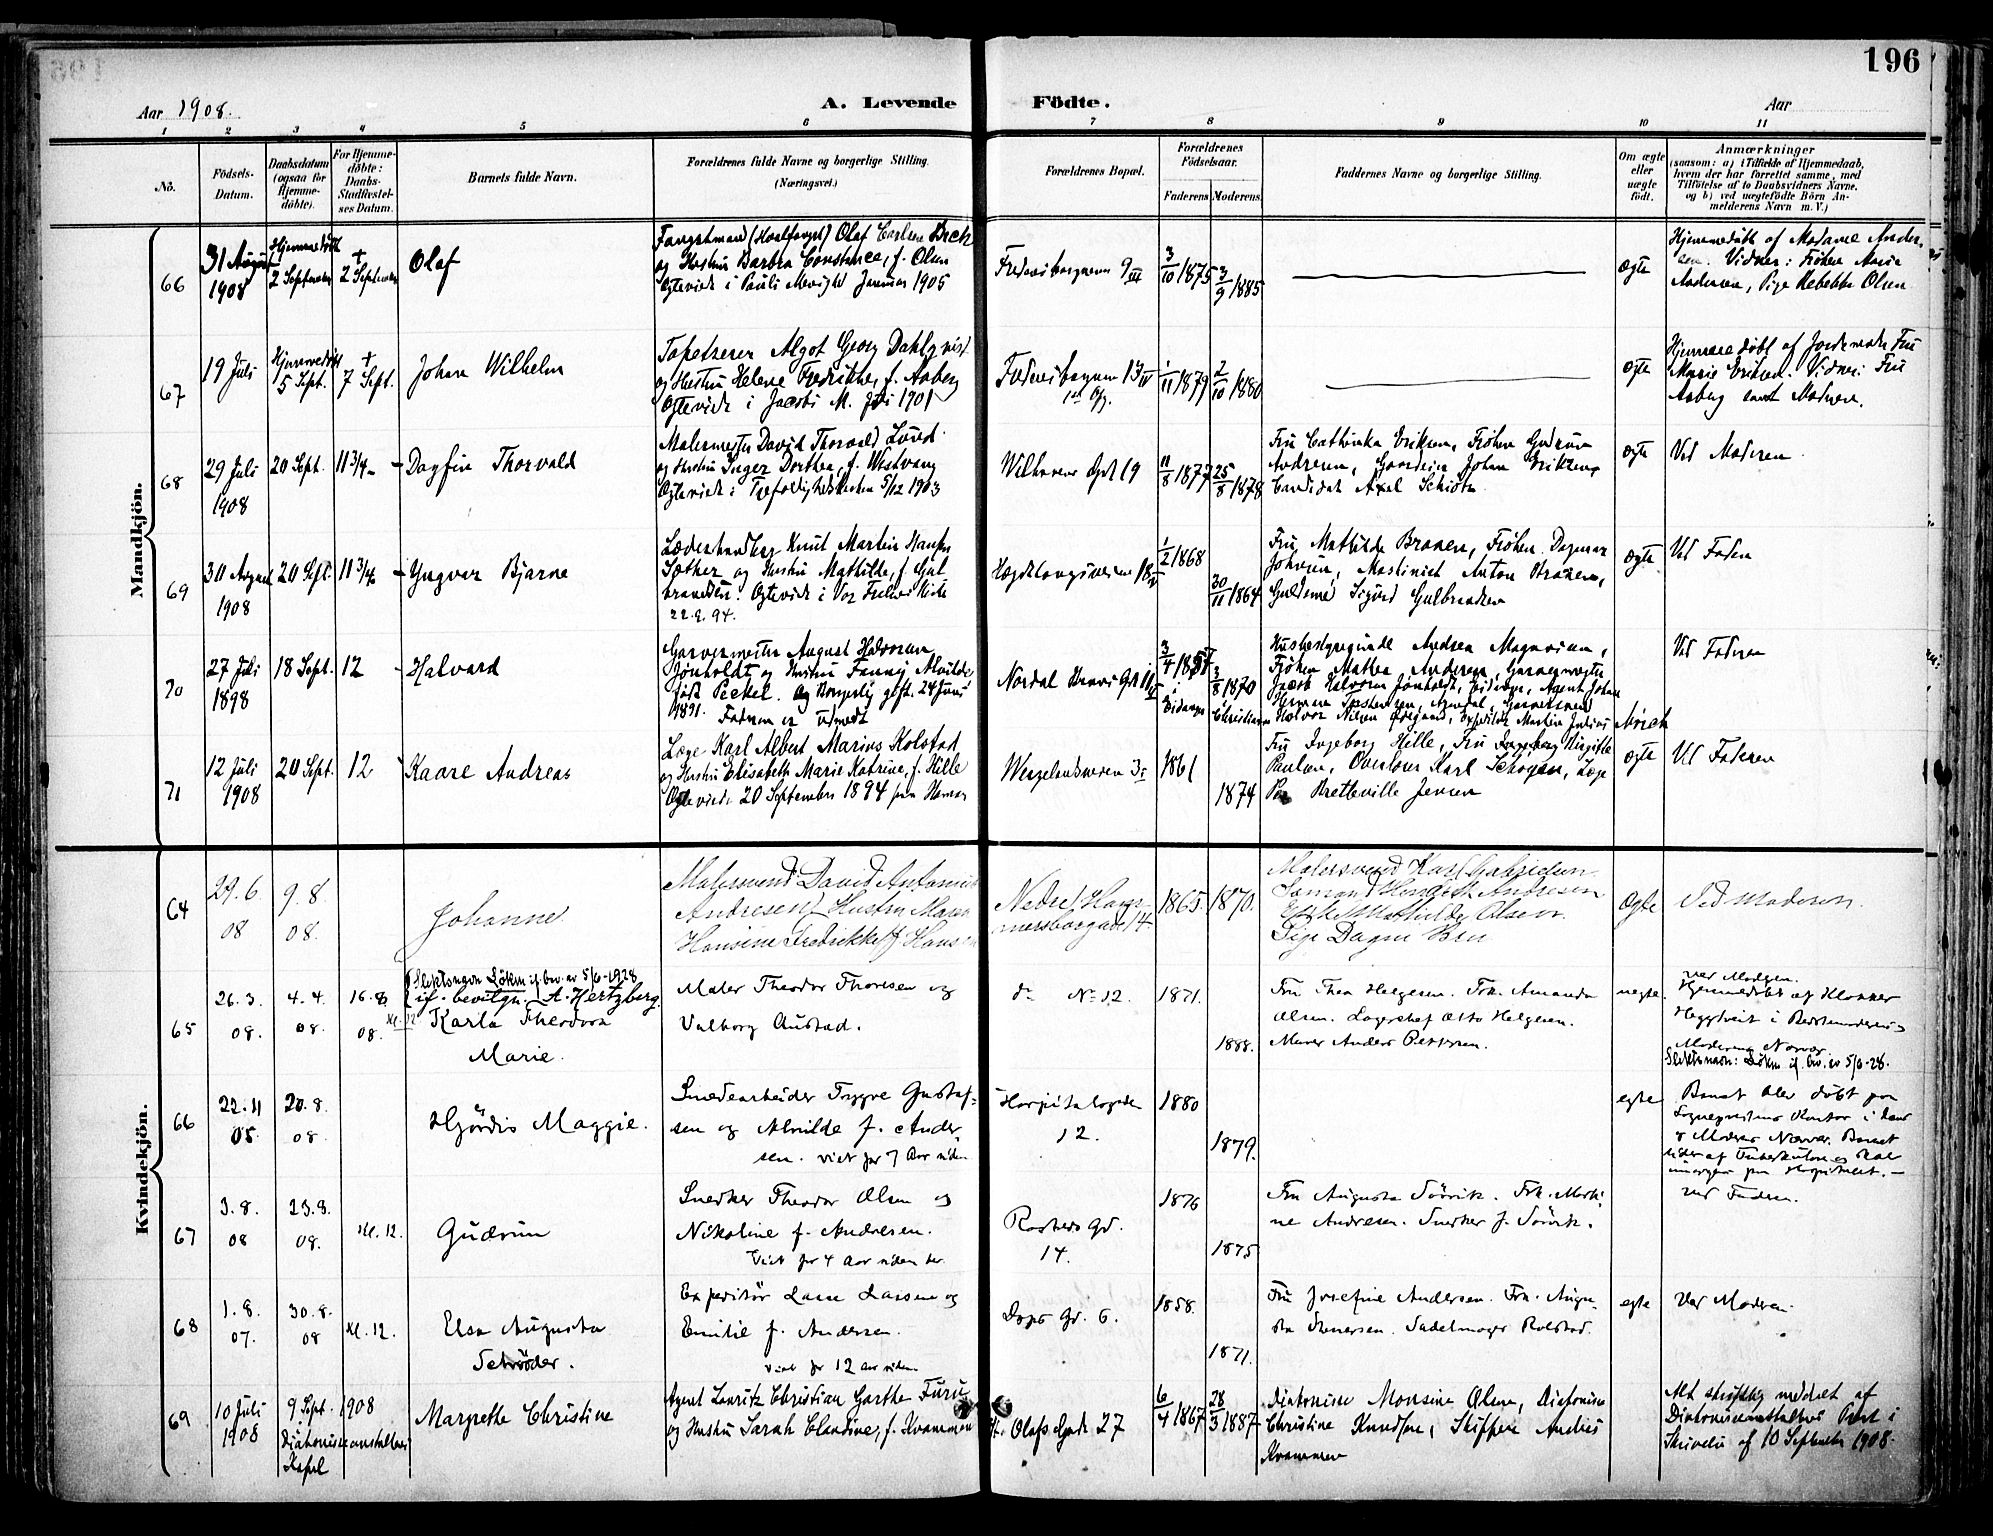 196
Aar 1908.
A. Levende Födte.
Aar
1 2 3 4 5 6 7 8 9 10 11
No.
Födsels-
Datum.
Daabsdatum
(ogsaa for
Hjemme-
döbte).
For Hjemme-
döbte:
Daabs-
Stadfæstel-
ses Datum.
Barnets fulde Navn.
Forældrenes fulde Navne og borgerlige Stilling.
(Næringsvei.)
Forældrenes Bopæl.
Forældrenes
Födselsaar.
Faderens
Moderens
Faddernes Navne og borgerlige Stilling.
Om ægte
eller
uægte
födt.
Anmærkninger
(saasom: a) i Tilfælde af Hjemmedaab,
hvem der har forrettet samme, med
Tilföielse af to Daabsvidners Navne,
og b) ved uægtefödte Börn An-
melderens Navn m. V.)
Mandkjön.
66
31 August
1908
Hjemmedöbt
2 September
+
2 September
Olaf
Fangstmand (Hvalfangst) Olaf Carlsen Beck
og Hustru Barbra Constance, f. Olsen
Ægteviede i Pauli Menighed Januar 1905
3/10 1875
3/9 1885
ægte
Hjemmedöbt af Madame Ander-
sen. Vidner: Fröken
Andersen, Pige Rebekka Olsen
67
19 Juli
Hjemmedöbt
5 Sept.
+
7 Sept.
Johan Wilhelm
Tapetserer Algot Georg Dahlqvist
og Hustru Helene Fredrikke, f. Aaberg
Ægteviede i Jacobs M. Juli 1901
1/11 1879
2/10 1880
ægte
Hjemmedöbt af Jordemoder Fru
Marie Eriksen. Vidner: Fru
Aaberg samt Moderen.
68
29 Juli
1908
20 Sept.
11 3/4
Dagfin Thorvald
Malermester David Thorvald Lund
og Hustru Inger Dorthea, f. Westvang
Ægteviede i Trefoldighedskirken 5/12 1903
19
11/8 1877
25/8 1878
Fru Cathinka Eriksen, Fröken Gudrun
Andresen, Johan Eriksen,
Candidat Axel Schiötz
ægte
Ved Moderen
69
30 August
1908
20 Sept.
11 3/4
Yngvar Bjarne
Læderhandler Knut Martin Hansen
Sæther og Hustru Mathilde, f. Gul-
brandsen. Ægteviede i Vor Frelsers Kirke
22.9.94.
Hægdehaugsveien
1/2 1868
30/11 1864
Fru Mathilde Braaen, Fröken Dagmar
Johnsen, Maskinist Anton Braaen,
Guldsmed Sigurd Gulbrandsen
ægte
Ved Faderen
70
27 Juli
1898
18 Sept.
12
Halvard
Garvermester August Halvorsen
Jönholdt og Hustru Fanny Alvilde,
født Peckel. Borgerlig gift. 24 Juni
1891.
Faderen er udmeldt
Nordal Bruns Gd
3/4
i
Eidanger
3/8 1870
i
Christiania
Husbestyrerinde Andrea Magnusen,
Fröken Mathea Andersen, Garvermester
Jacob Halvorsen Jönholdt, Eidanger, Agent Johan
Halvor Nilsen
ægte
Ved Faderen
71
12 Juli
1908
20 Sept.
12
Kaare Andreas
Læge Karl Albert Marius Kolstad
og Hustru Elisabeth Marie Katrine, f. Hille
Ægteviede 20 September 1894 paa Hamar
Wergelandsveien 3
1861
1874
Fru Ingeborg Hille, Fru Ingeborg Birgitte
Paulsen, Overlærer Karl Schögen, Læge
Per Bretteville Jensen
ægte
Ved Faderen
Kvindekjön.
64
29.6
08
9.8.
08.
Johanne
Malersvend David Antonius
Andresen & Hustru Maren
Hansine Fredrikke f. Hansen
Nedre Ham-
mersborggade 14.
1865.
1870.
Malersvend Karl Gabrielsen
Sömand Hengest Andresen
Enke Mathilde Olsen
Pige Dagny Bru
Ægte
Ved Moderen.
65
26.3.
08.
4.4.
08.
16.8.
08.
Kl. 12
Slektsnavn Lökken if. bev. av 5/6-1928
if. bevilgn. A. Hertzberg
Karla Theodora
Marie.
Maler Theodor Thoresen og
Valborg Austad.
do No 12.
1871.
1888.
Fru Thea Helgesen. Frk. Amanda
Olsen. Lagerchef Otto Helgesen.
Murer Anders Pettersen.
uegte.
ved Moderen.
Hjemmedöbt af Klokker
Heggtveit i Bedstemoderens &
Moderens Nærvær.
Slektsnavn: Lökken if. bev. av 5/6-28.
66
22.11
05.
20.8.
08.
Hjördis Maggie.
Smedearbeider Trygve Gustaf-
sen og Alvilde f. Ander-
sen. viet for 7 Aar siden
Hospitalsgaden
12.
1880
1879.
egte
Barnet blev döbt paa
Sognepresten's Kontor i hans
& Moderens Nærvær. Barnet
lider af Tuberkulose & skal
paa Hospitalet.
67
3.8.
08
23.8.
08.
Kl. 12.
Gudrun
Snedker Theodor Olsen og
Nikoline f. Andresen.
Viet for 4 Aar siden her.
Rosteds Gd.
14.
1876
1875
Fru Augusta Sörvik. Frk. Marti-
ne Andresen. Snedker J. Sörvik.
ved Faderen.
68
1.8.
07.
30.8.
08
Kl. 12.
Elsa Augusta
Schröder.
Expeditör Lasse Larsen og
Emilie f. Andersen.
viet for 12 aar siden.
Dops Gd. 6.
1858.
1871.
Fru Josefine Andersen. Frk. Augu-
sta Stenersen. Sadelmager Rolstad.
egte
Ved Moderen.
69
10 Juli
1908
9 Sept. 1908
Diakonisseanstaltens
Kapel
Margrethe Christine
Agent Lauritz Christian Garthe Furu
og Hustru Sarah Claudine, f. Kvammen
St. Olafs Gade 27
6/4 1867
28/3 1887
Diakonisse Monsine Olsen, Diakonisse
Christine Knudsen, Skipper Andreas
Kvammen
Alt skriftlig meddelt af
Diakonisseanstaltens Prest i
Skrivelse af 10 September 1908.